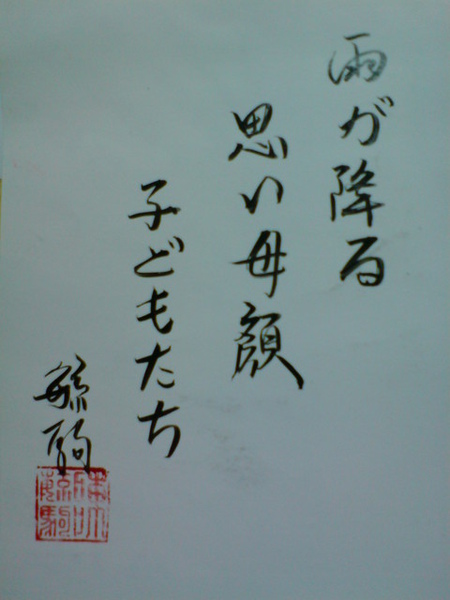 雨が降る
思い母顔
子どもたち